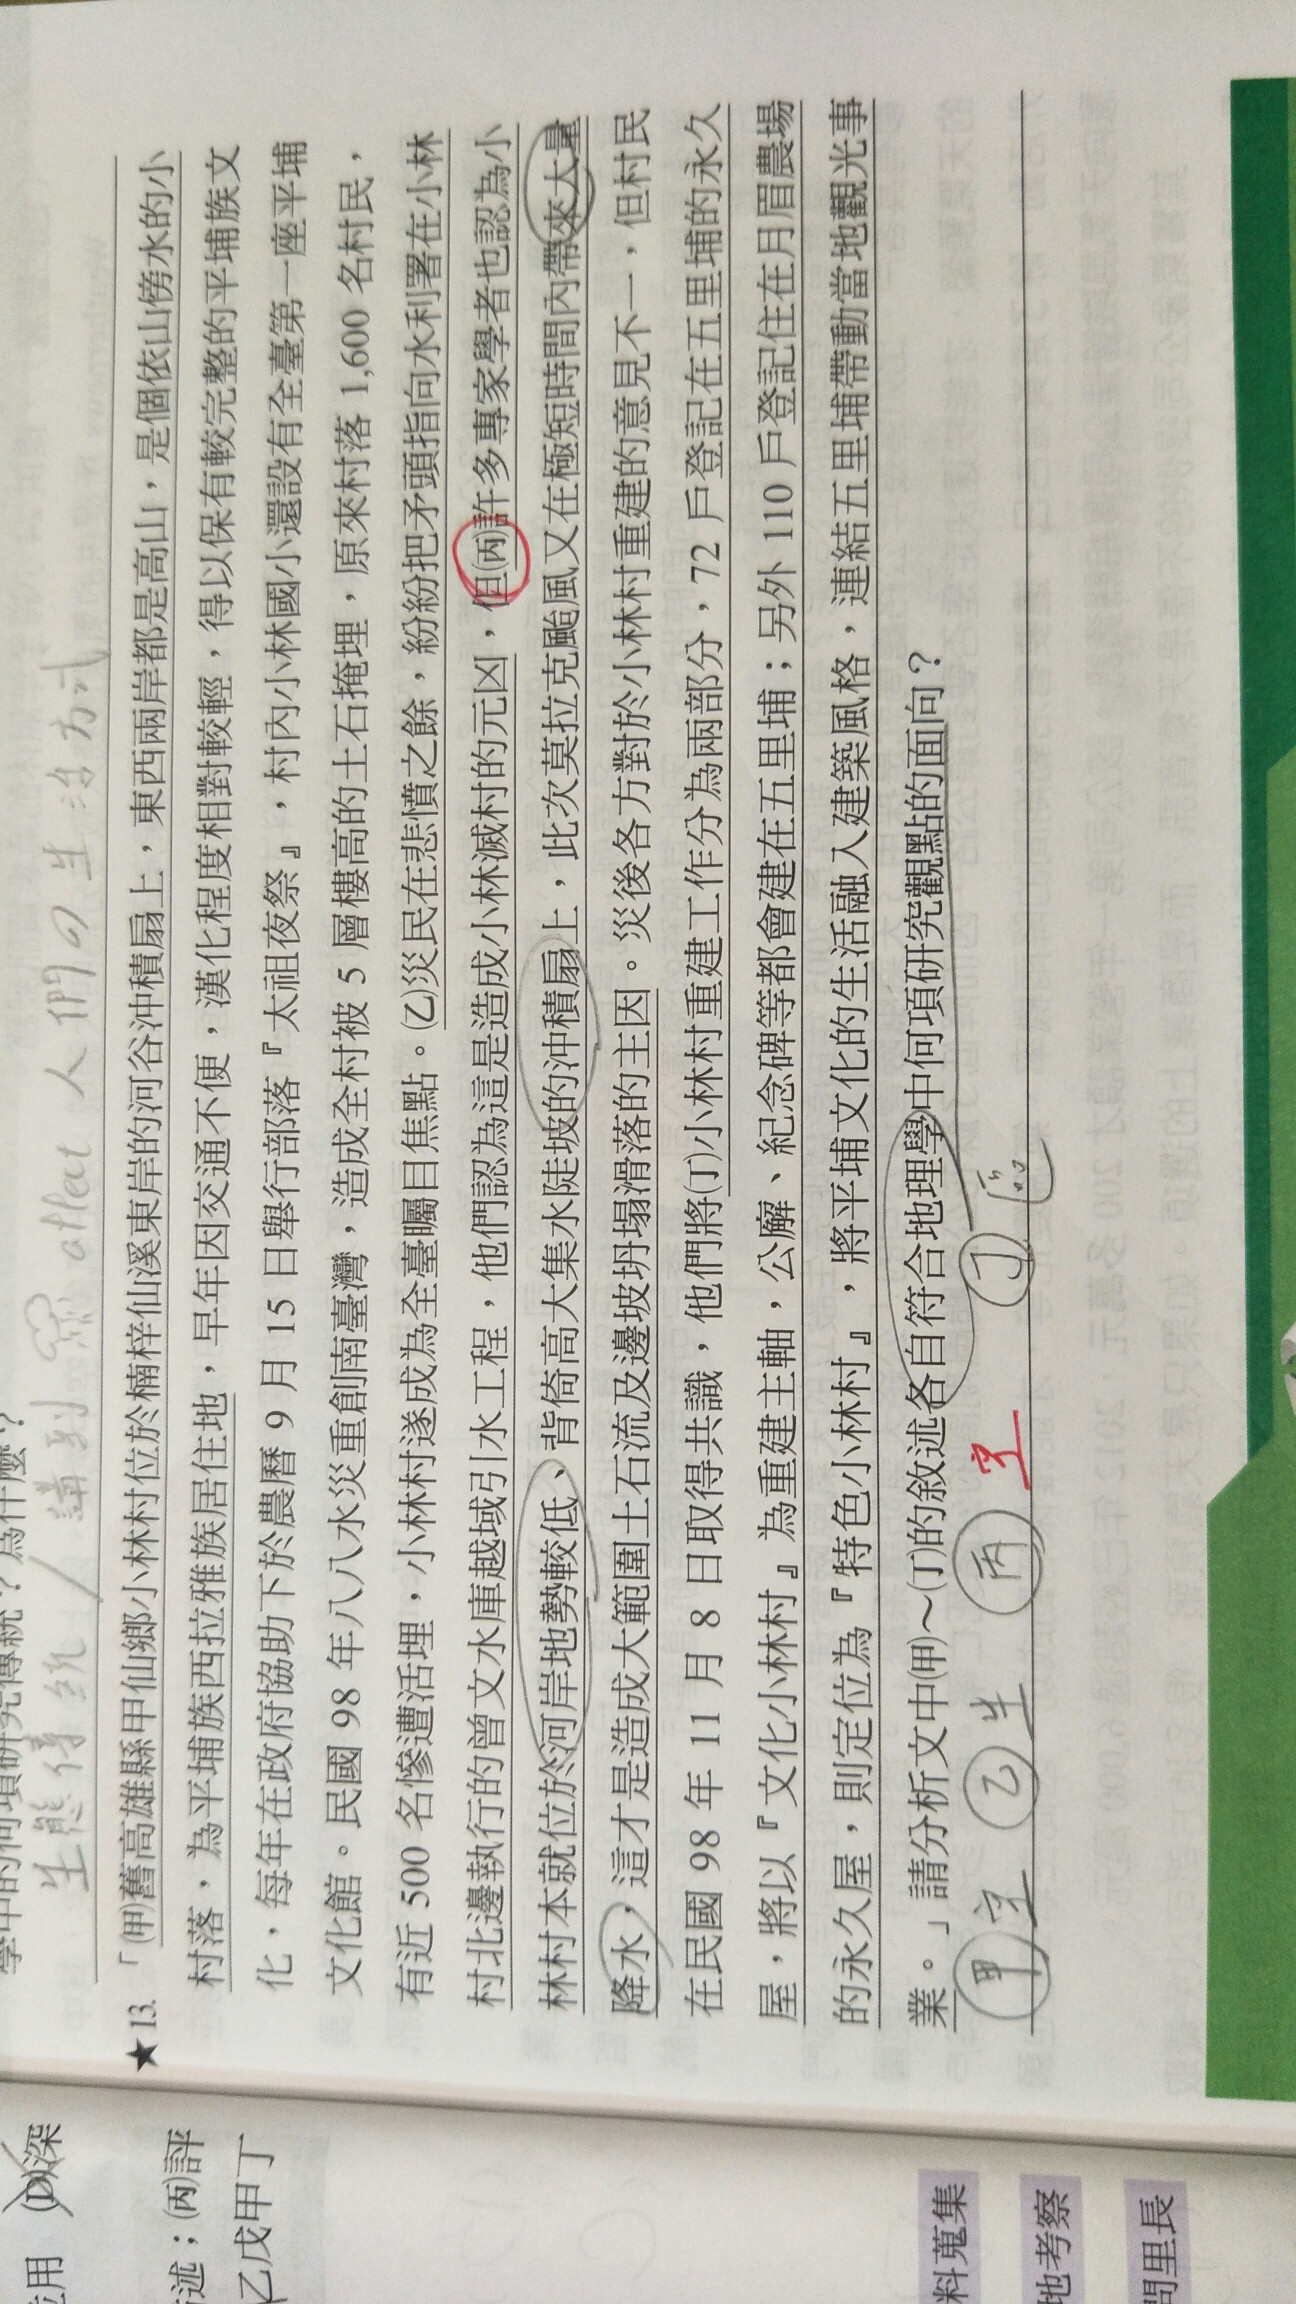 學中的何項研究傳統？為什麼？
生態傳統／講到 affect 人們的生活方式
★13.「㈙舊高雄縣甲仙鄉小林村位於楠梓仙溪東岸的河谷沖積扇上，東西兩岸都是高山，是個依山傍水的小
村落，為平埔族西拉雅族居住地，早年因交通不便，漢化程度相對較輕，得以保有較完整的平埔族文
化，每年在政府協助下於農曆 9 月 15 日舉行部落『太祖夜祭』，村內小林國小還設有全臺第一座平埔
文化館。民國 98 年八八水災重創南臺灣，造成全村被 5 層樓高的土石掩埋，原來村落 1,600 名村民，
有近 500 名慘遭活埋，小林村遂成為全臺矚目焦點。㈚災民在悲憤之餘，紛紛把矛頭指向水利署在小林
村北邊執行的曾文水庫越域引水工程，他們認為這是造成小林滅村的元凶，但㈛許多專家學者也認為小
林村本就位於河岸地勢較低、背倚高大集水陡坡的沖積扇上，此次莫拉克颱風又在極短時間內帶來大量
降水，這才是造成大範圍土石流及邊坡坍塌滑落的主因。災後各方對於小林村重建的意見不一，但村民
在民國 98 年 11 月 8 日取得共識，他們將㈜小林村重建工作分為兩部分，72 戶登記在五里埔的永久
屋，將以『文化小林村』為重建主軸，公廨、紀念碑等都會建在五里埔；另外 110 戶登記住在月眉農場
的永久屋，則定位為『特色小林村』，將平埔文化的生活融入建築風格，連結五里埔帶動當地觀光事
業。」請分析文中㈙～㈜的敘述各自符合地理學中何項研究觀點的面向？
甲 空 乙 生 丙 空 丁 區
位用 (D)深
述；㈛評
乙戊甲丁
料蒐集
地考察
問里長